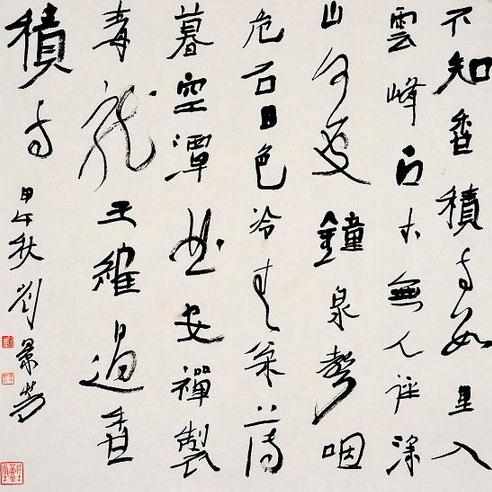 不知香積寺數里入
雲峰古木無人徑深
山何處鐘泉聲咽
危石日色冷青松薄
暮空潭曲安禪製
毒龍王維過香
積寺
甲午秋劉景